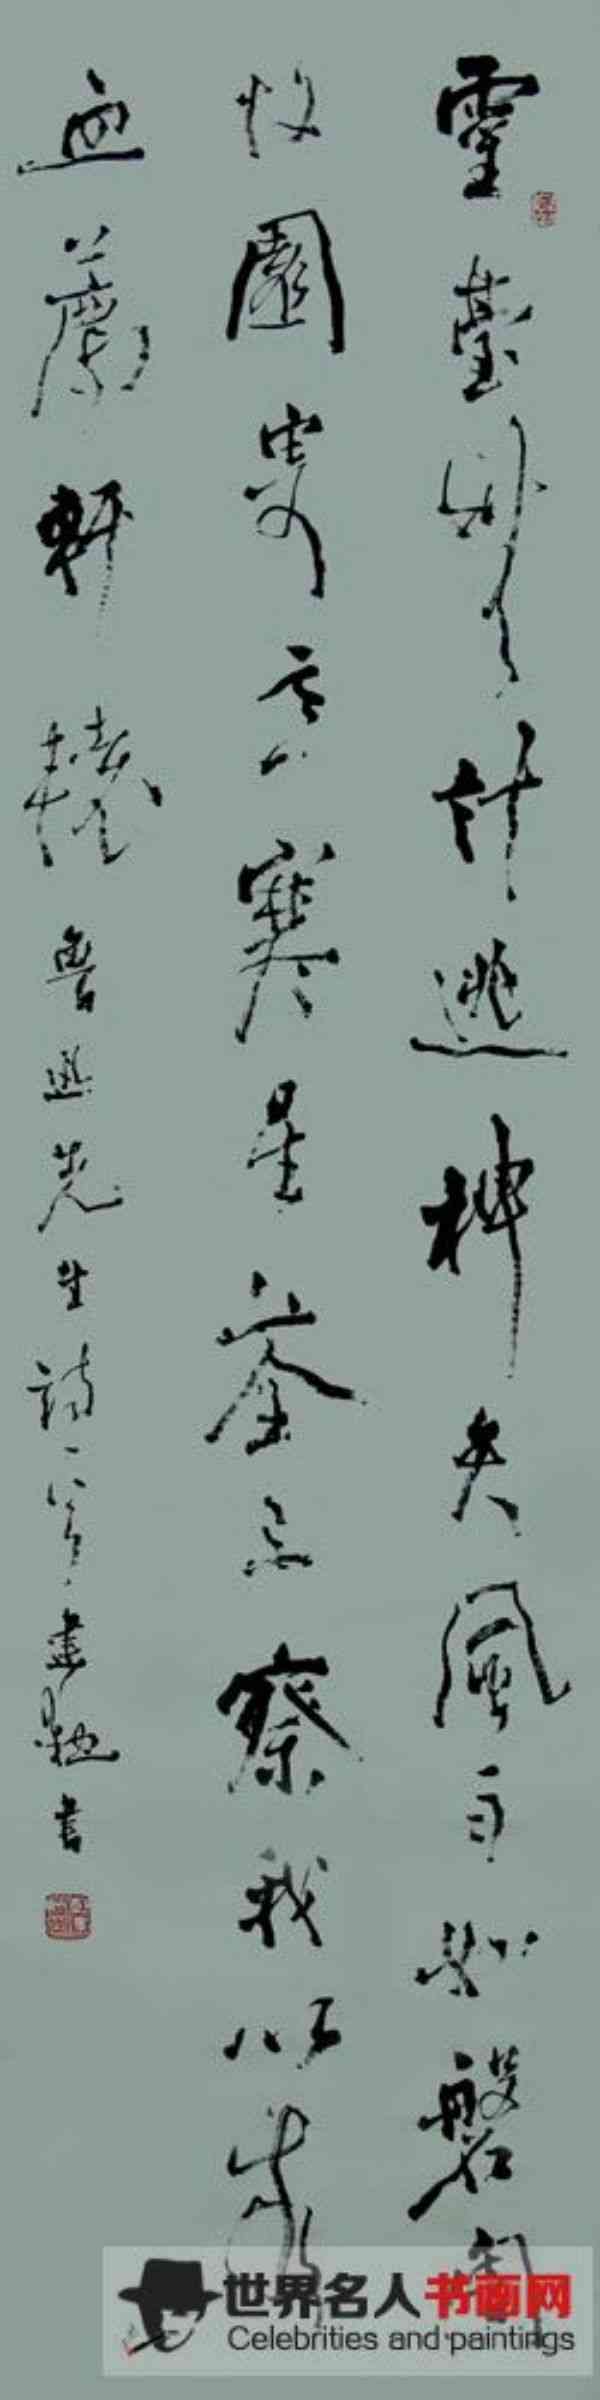 靈臺無計逃神矢風雨如磐闇
故園寄意寒星荃不察我以我
血薦軒轅 魯迅先生詩一首 書
世界名人书画网
Celebrities and paintings